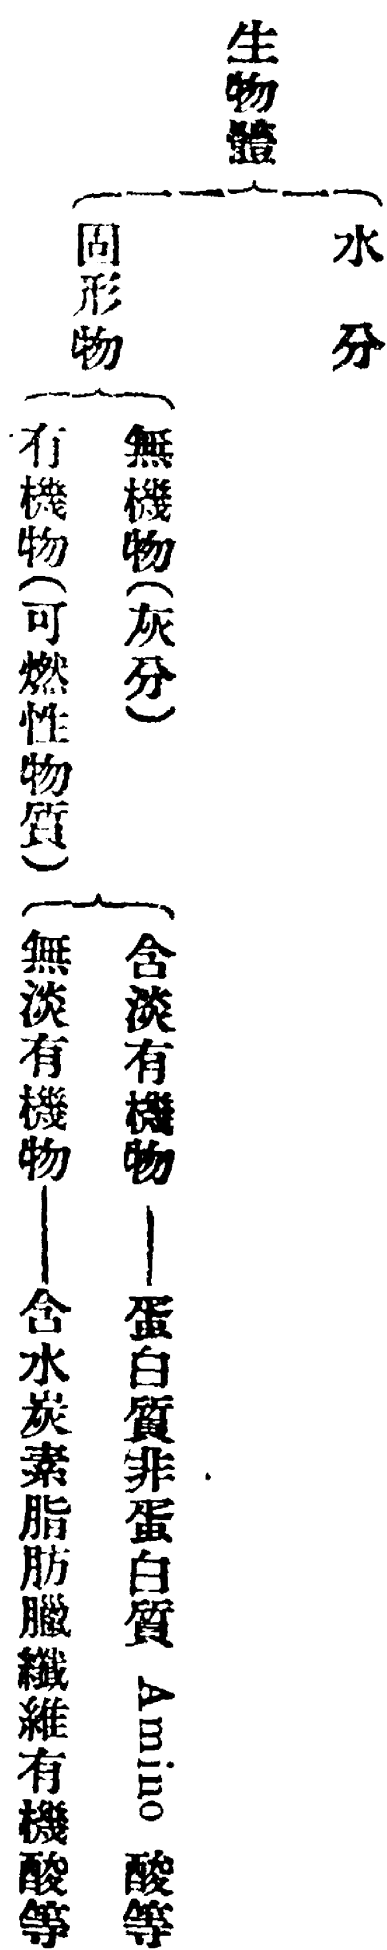 生物體
水分
固形物
無機物(灰分)
有機物(可燃性物質)
含淡有機物——蛋白質非蛋白質 Amino 酸等
無淡有機物——含水炭素脂肪臘纖維有機酸等